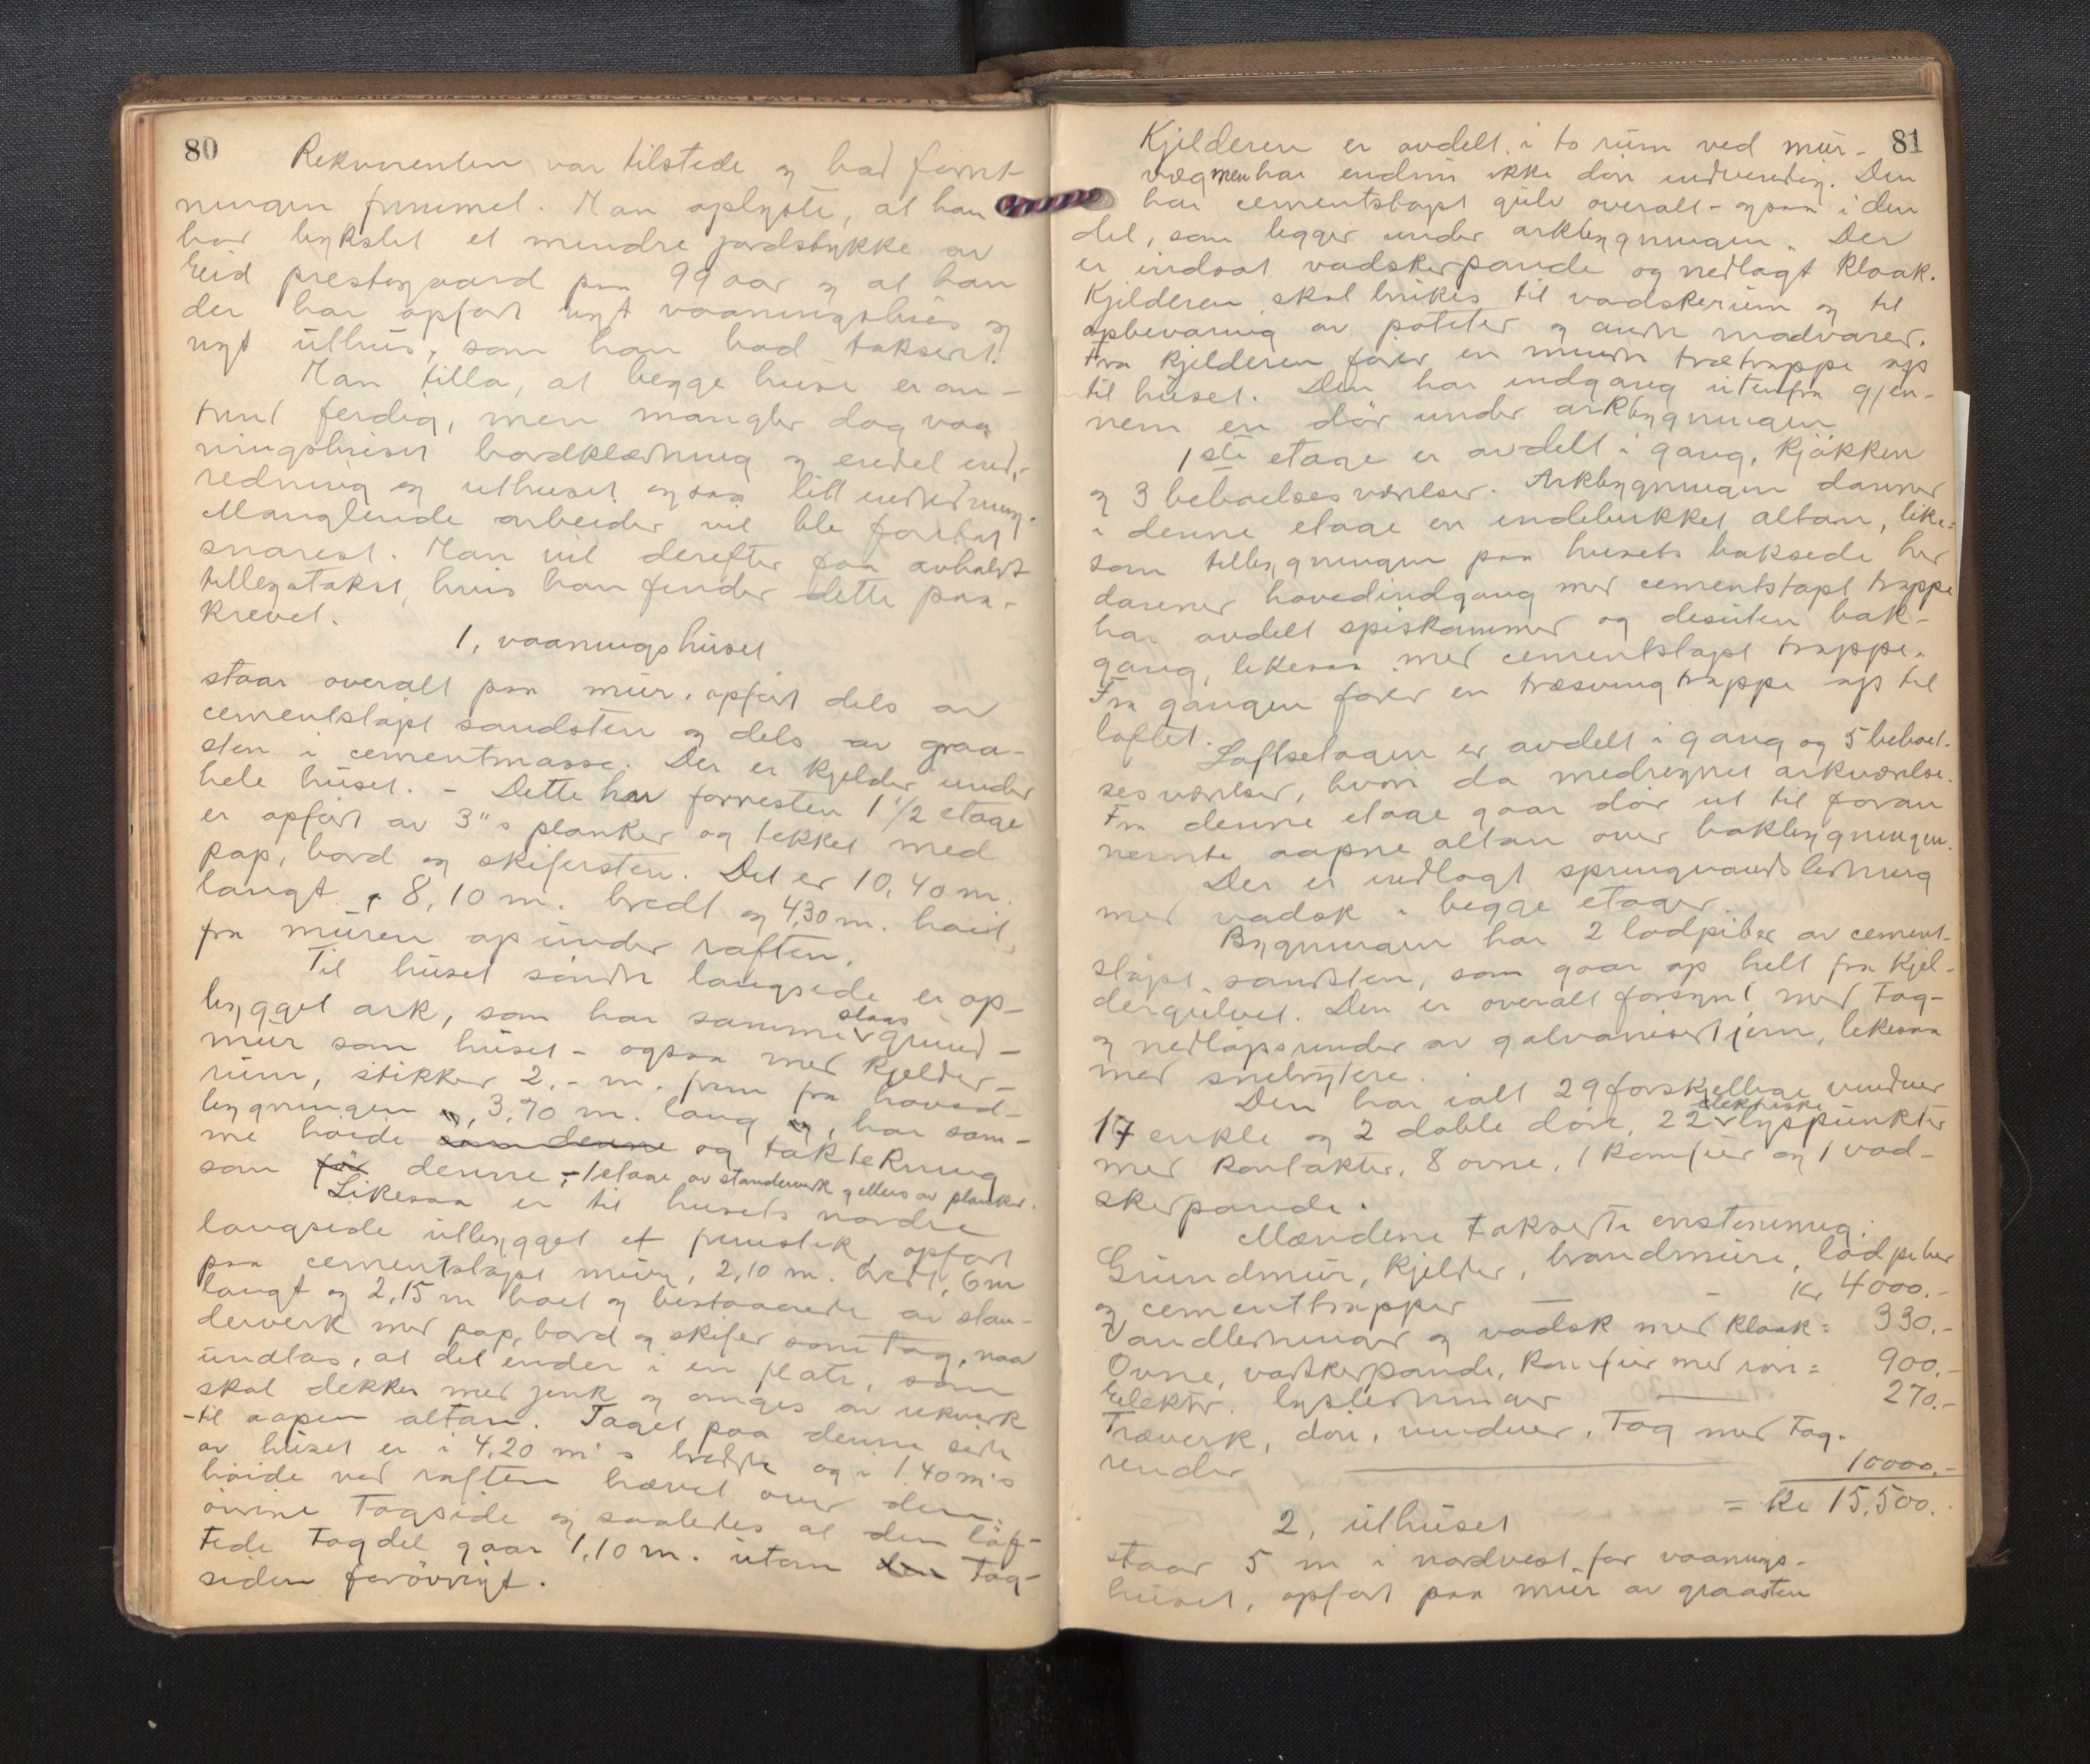 80
Rekvirenten var tilstede og bad forret-
ningen fremmet. Han oplyste, at han
har bykslet et mindre jordstykke av
Eid prestegaard paa 99 aar og at han
der har opført nyt vaaningshus og
nyt uthus, som han bad taksert.
Han tilla, at begge huse er om-
trent ferdig, men mangler dog vaa-
ningshuset bordklædning og endel ind-
redning og uthuset ogsaa litt indredning.
Manglende arbeider vil bli
snarest. Han vil derefter faa avholdt
tillegstakst, hvis han finder dette paa-
krevet.
1, vaaningshuset
staar overalt paa mur, opført dels av
cementstøpt sandsten og dels av graa-
sten i cementmasse. Der er kjelder under
hele huset. - Dette har forresten 1 1/2 etage
er opført av 3"s planker og tekket med
pap, bord og skifersten. Det er 10,40 m.
langt, 8,10 m. bredt og 4,30 m. høit,
fra muren op under raften.
Til huset søndre langside er op-
bygget ark, som har samme slags grund-
mur som huset - ogsaa med kjelder-
rum, stikker 2,- m. frem fra hoved-
bygningen, 3,70 m. lang, har sam-
me høide som denne og taktekning
som for denne, - 1 etage av standerverk og ellers av planker.
Likesaa er til husets nordre
langside utbygget et , opført
paa cementstøpt mur, 2,10 m. bredt, 6 m
langt og 2,15 m høit og bestaaende av stan-
derverk med pap, bord og skifer som tag, naar
undtas, at det ender i en flate, som
skal dekkes med zink og omgis av rekverk
-til aapen altan. Taget paa denne side
av huset er i 4,20 m's bredde og i 1,40 m's
høide ved raften hævet over den
øvrige tagside og saaledes at den løf-
tede tagdel gaar 1,10 m. utom den tag-
siden forøvrigt.
81
Kjelderen er avdelt i to rum ved mur-
væg men har endnu ikke dør indvendig. Den
har cementstøpt gulv overalt - ogsaa i den
del, som ligger under arkbygningen. Der
er indsat vaskerpande og nedlagt kloak.
Kjelderen skal brukes til vadskerum og til
opbevaring av poteter og andre madvarer.
Fra kjelderen fører en mindre trætrappe op
til huset. Den har indgang utenfra gjen-
nem en dør under arkbygningen
1ste etage er avdelt i gang, kjøkken
og 3 beboelsesværelser. Arkbygningen danner
i denne etage en indelukket altan, like-
som tilbygningen paa husets bakside her
danner hovedindgang med cementstøpt trappe
har avdelt spiskammer og desuten bak-
gang, likesaa med cementstøpt trappe.
Fra gangen fører en træsvingtrappe op til
loftet.
Loftsetagen er avdelt i gang og 5 beboel-
sesværelser, hvori da medregnet arkværelse.
Fra denne etage gaar dør ut til foran
nevnte aapne altan over bakbygningen.
Der er indlagt springvandsledning
med vadsk i begge etager.
Bygningen har 2 lodpiber av cement-
støpt sandsten, som gaar op helt fra kjel-
dergulvet. Den er overalt forsynt med tag-
og nedløpsrender av galvanisert jern, likesaa
med snebrytere.
Den har ialt 29 forskjellige vinduer
17 enkle og 2 doble døre, 22 elektriske lyspunkter
med kontakter, 8 ovne, 1 komfur og 1 vad-
skerpande.
Mændene takserte enstemmig:
Grundmur, kjelder, brandmure, lodpiber
og cementtrapper - - Kr 4000.-
Vandledninger og vadsk med kloak = 330.-
Ovne, vaskerpande, komfur med rør = 900.-
Elektr. lysledninger — 270.-
Træverk, døre, vinduer, tag med tag-
render — 10000.-
= Kr 15,500.
2, uthuset
staar 5 m i nordvest for vaanings-
huset, opført paa mur av graasten